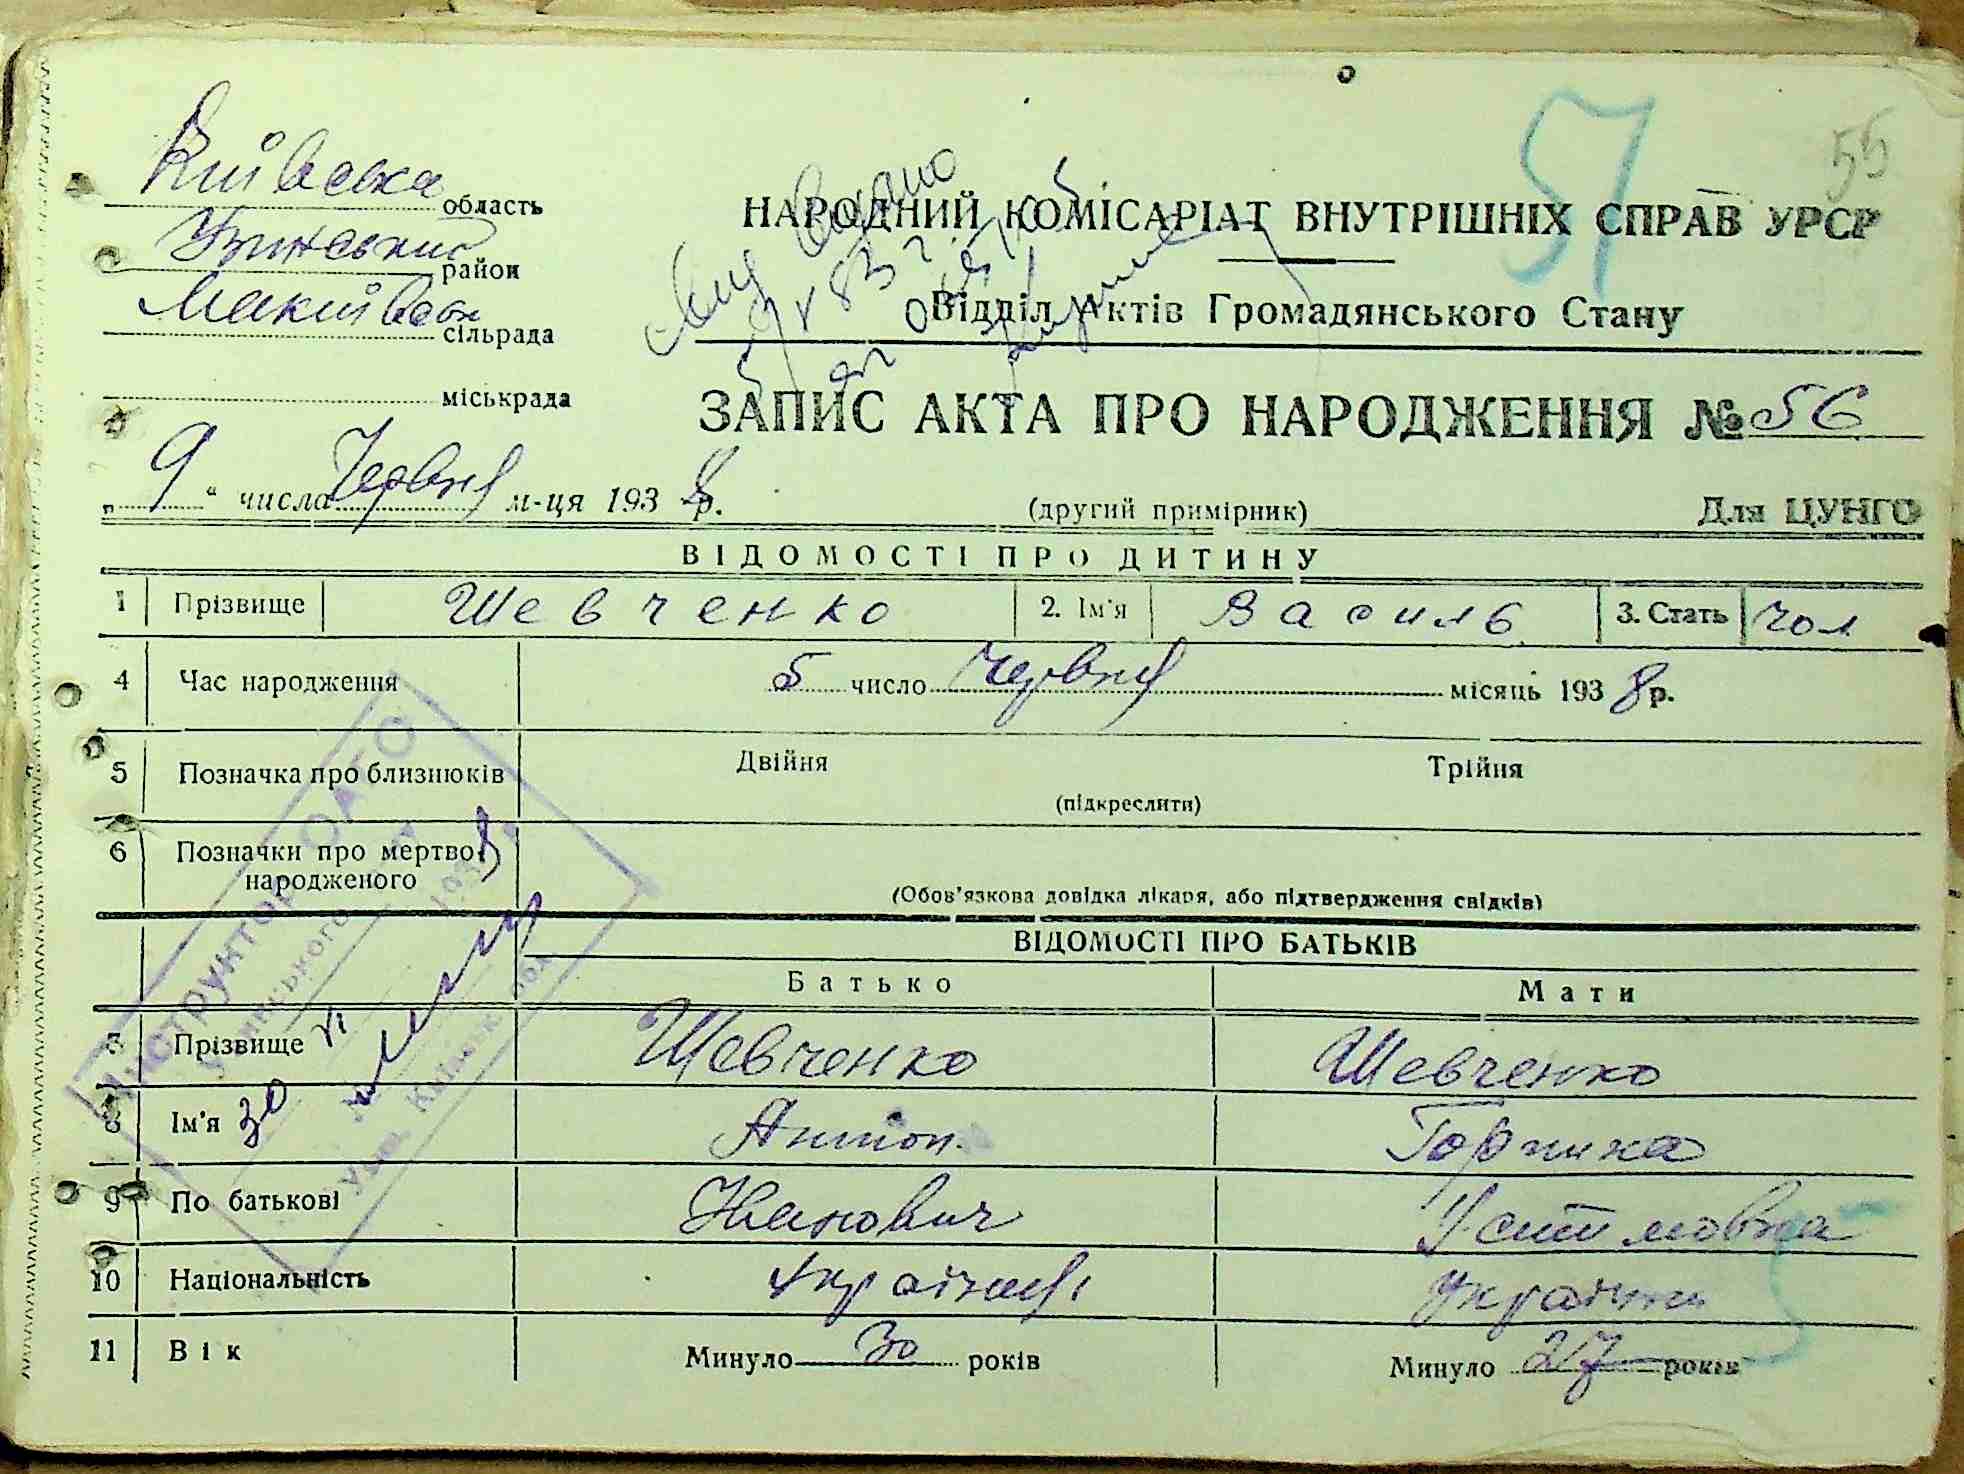 57
55
Київська область
Узинський район
Макиївська сільрада
міськрада
НАРОДНИЙ КОМІСАРІАТ ВНУТРІШНІХ СПРАВ УРСР
Відділ Актів Громадянського Стану
ЗАПИС АКТА ПРО НАРОДЖЕННЯ № 56
„ 9 “ числа Червня м-ця 1938 р.
(другий примірник)
Для ЦУНГО
ВІДОМОСТІ ПРО ДИТИНУ
1 Прізвище Шевченко 2. Ім'я Василь 3. Стать чол
4 Час народження 5 число Червня місяць 1938 р.
5 Позначка про близнюків Двійня Трійня
(підкреслити)
6 Позначки про мертвонародженого
(Обов'язкова довідка лікаря, або підтвердження свідків)
ВІДОМОСТІ ПРО БАТЬКІВ
Батько Мати
7 Прізвище Шевченко Шевченко
8 Ім'я Антон Горпина
9 По батькові Иванович Устимовна
10 Національність
11 Вік Минуло 30 років Минуло 27 років